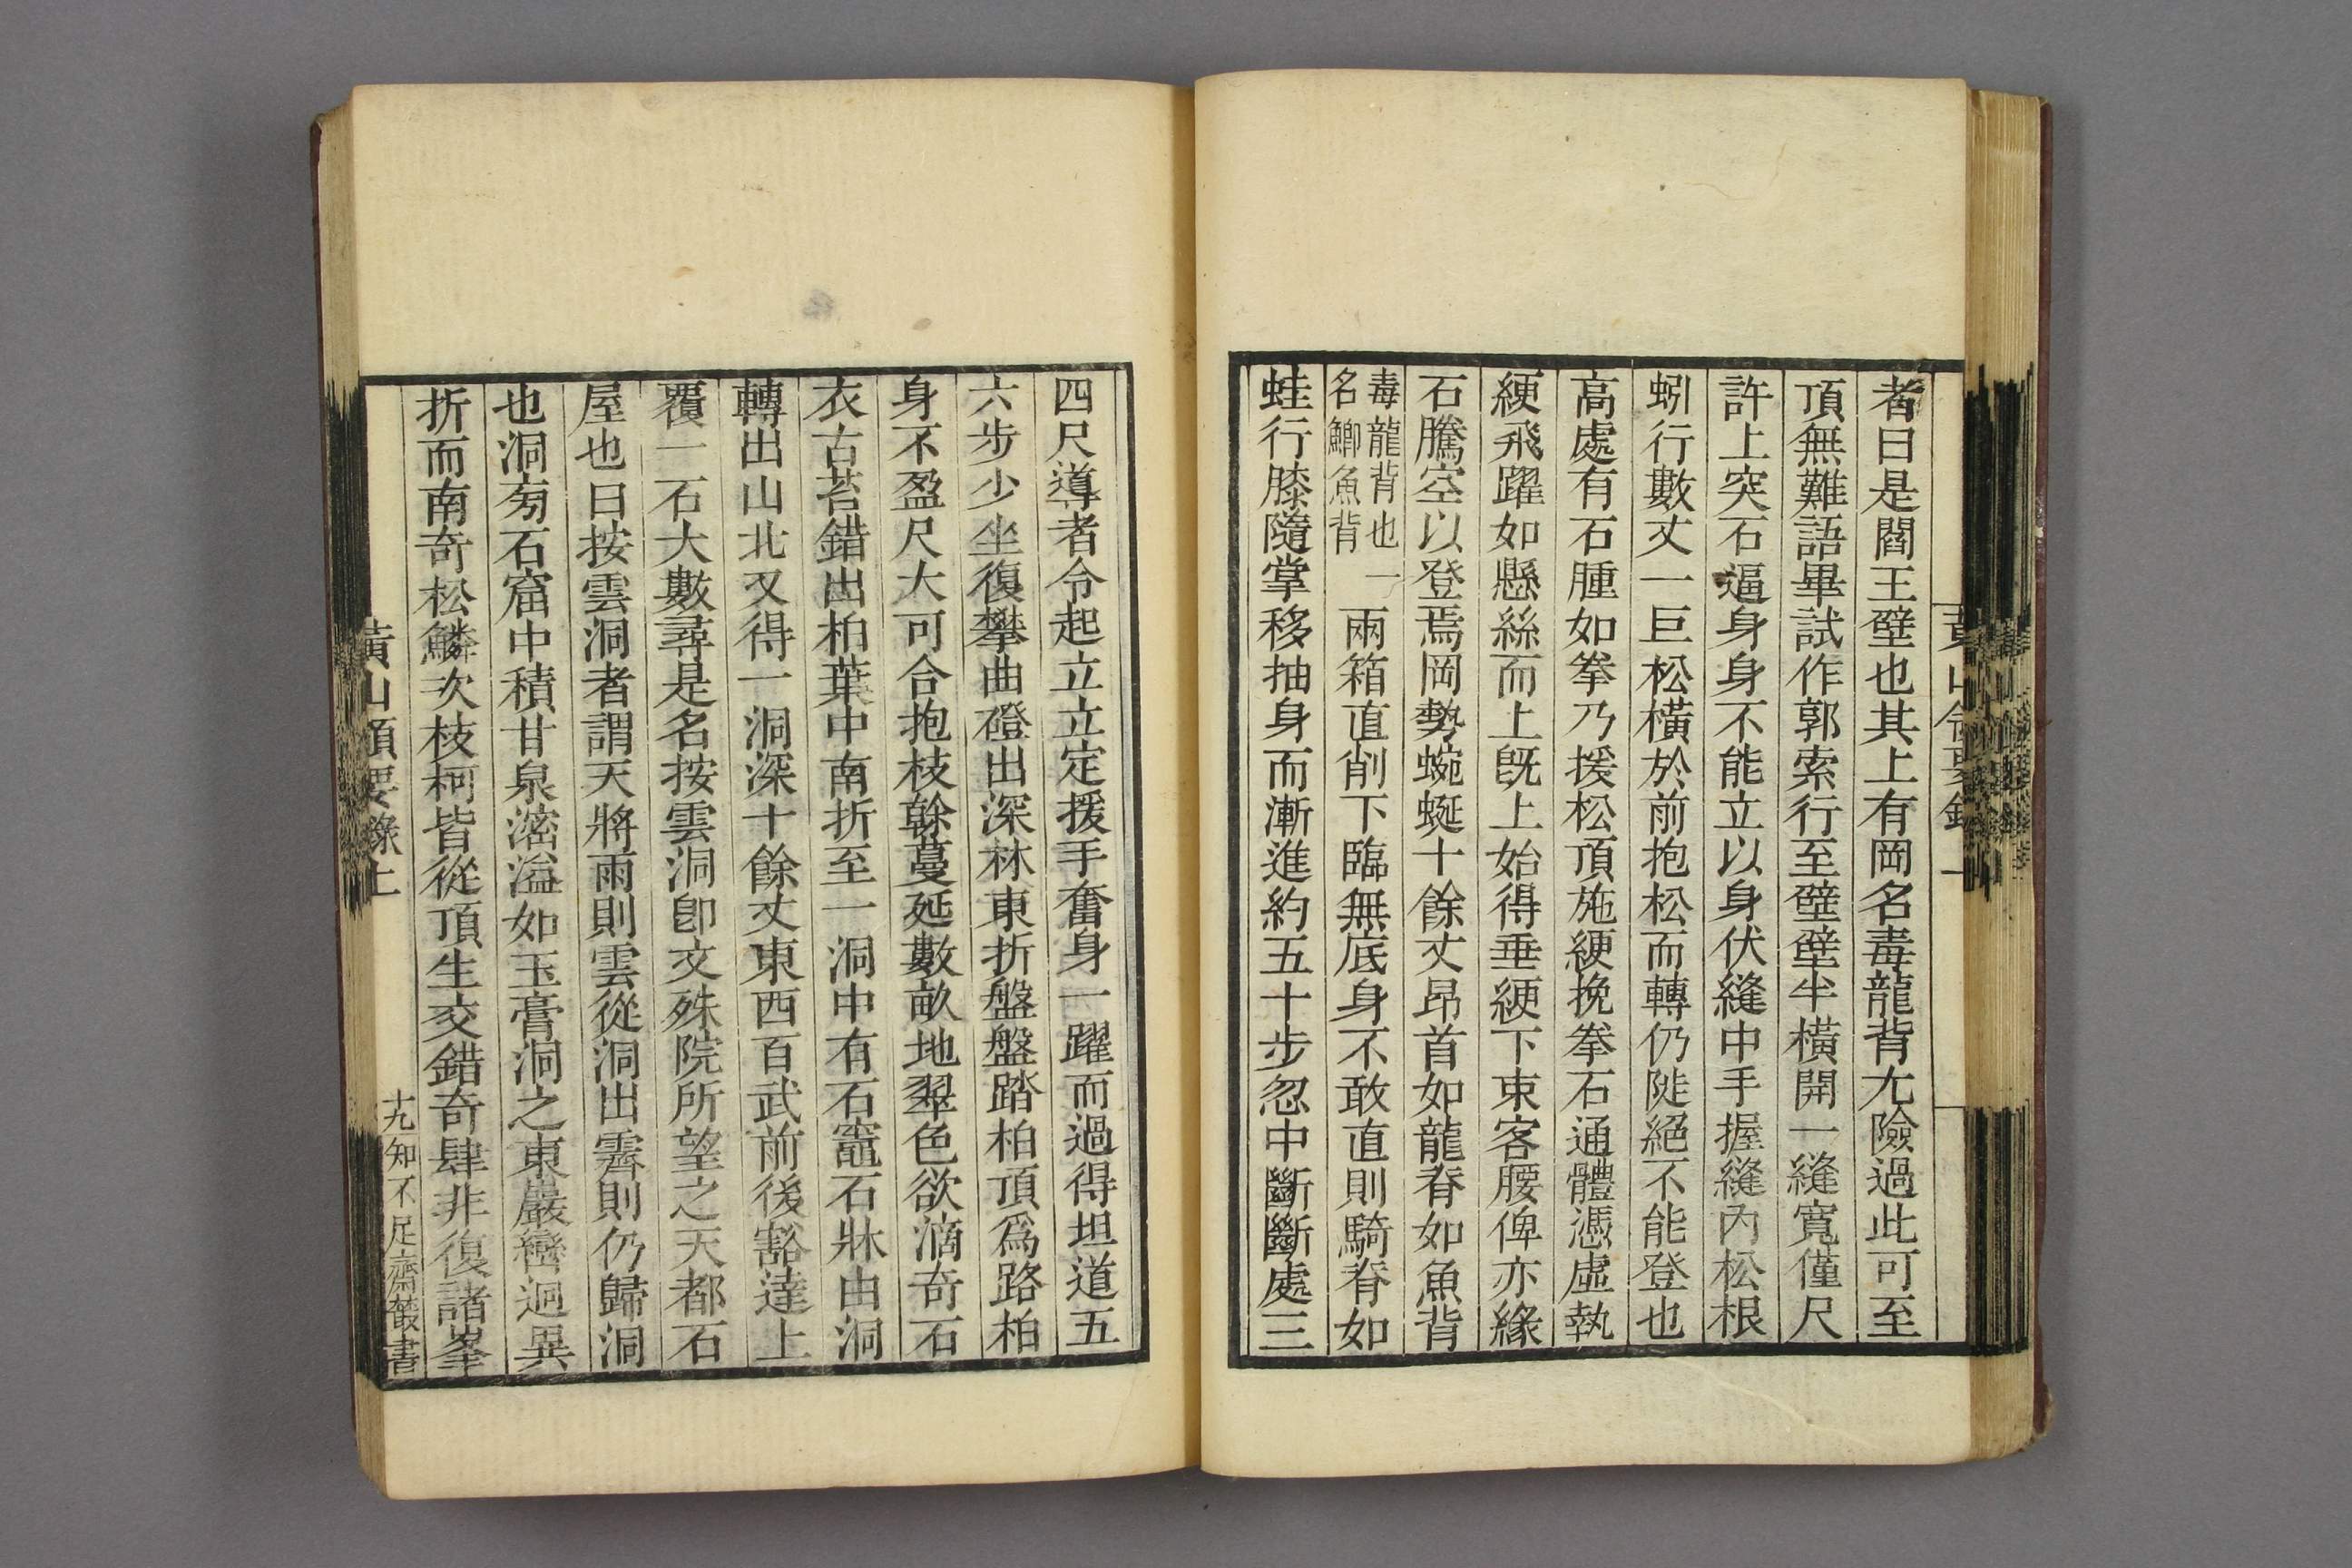 者曰是閻王壁也其上有岡名毒龍背尢險過此可至
頂無難語畢試作郭索行至壁壁半橫開一縫寬僅尺
許上突石逼身身不能立以身伏縫中手握縫內松根
蚓行數丈一巨松橫於前抱松而轉仍陡絕不能登也
高處有石腫如拳乃援松頂施綆挽拳石通體憑虛執
綆飛躍如懸絲而上旣上始得垂綆下束客腰俾亦緣
石騰空以登焉岡勢蜿蜒十餘丈昂首如龍脊如魚背
毒龍背也一
名鯽魚背
兩箱直削下臨無底身不敢直則騎脊如
蛙行膝隨掌移抽身而漸進約五十步忽中斷斷處三
四尺導者令起立立定援手奮身一躍而過得坦道五
六步少坐復攀曲磴出深林東折盤盤踏柏頂爲路柏
身不盈尺大可合抱枝榦蔓延數畝地翠色欲滴奇石
衣古苔錯出柏葉中南折至一洞中有石竈石牀由洞
轉出山北又得一洞深十餘丈東西百武前後豁達上
覆一石大數尋是名按雲洞卽文殊院所望之天都石
屋也曰按雲洞者謂天將雨則雲從洞出霽則仍歸洞
也洞旁石窟中積甘泉滵溢如玉膏洞之東巖巒迴異
折而南奇松鱗次枝柯皆從頂生交錯奇肆非復諸峯
黃山領要錄上
十九知不足齋叢書